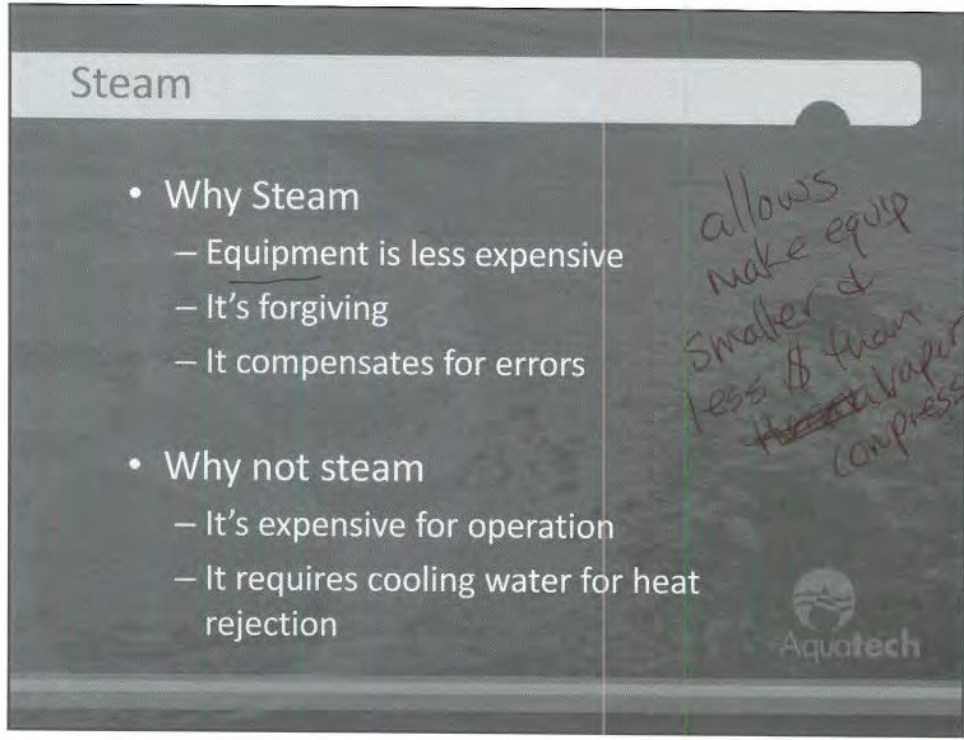 Steam
• Why Steam
– Equipment is less expensive
– It's forgiving
– It compensates for errors
• Why not steam
– It's expensive for operation
– It requires cooling water for heat
rejection
allows
make equip
smaller &
less $ than
vapor
compress
Aquatech